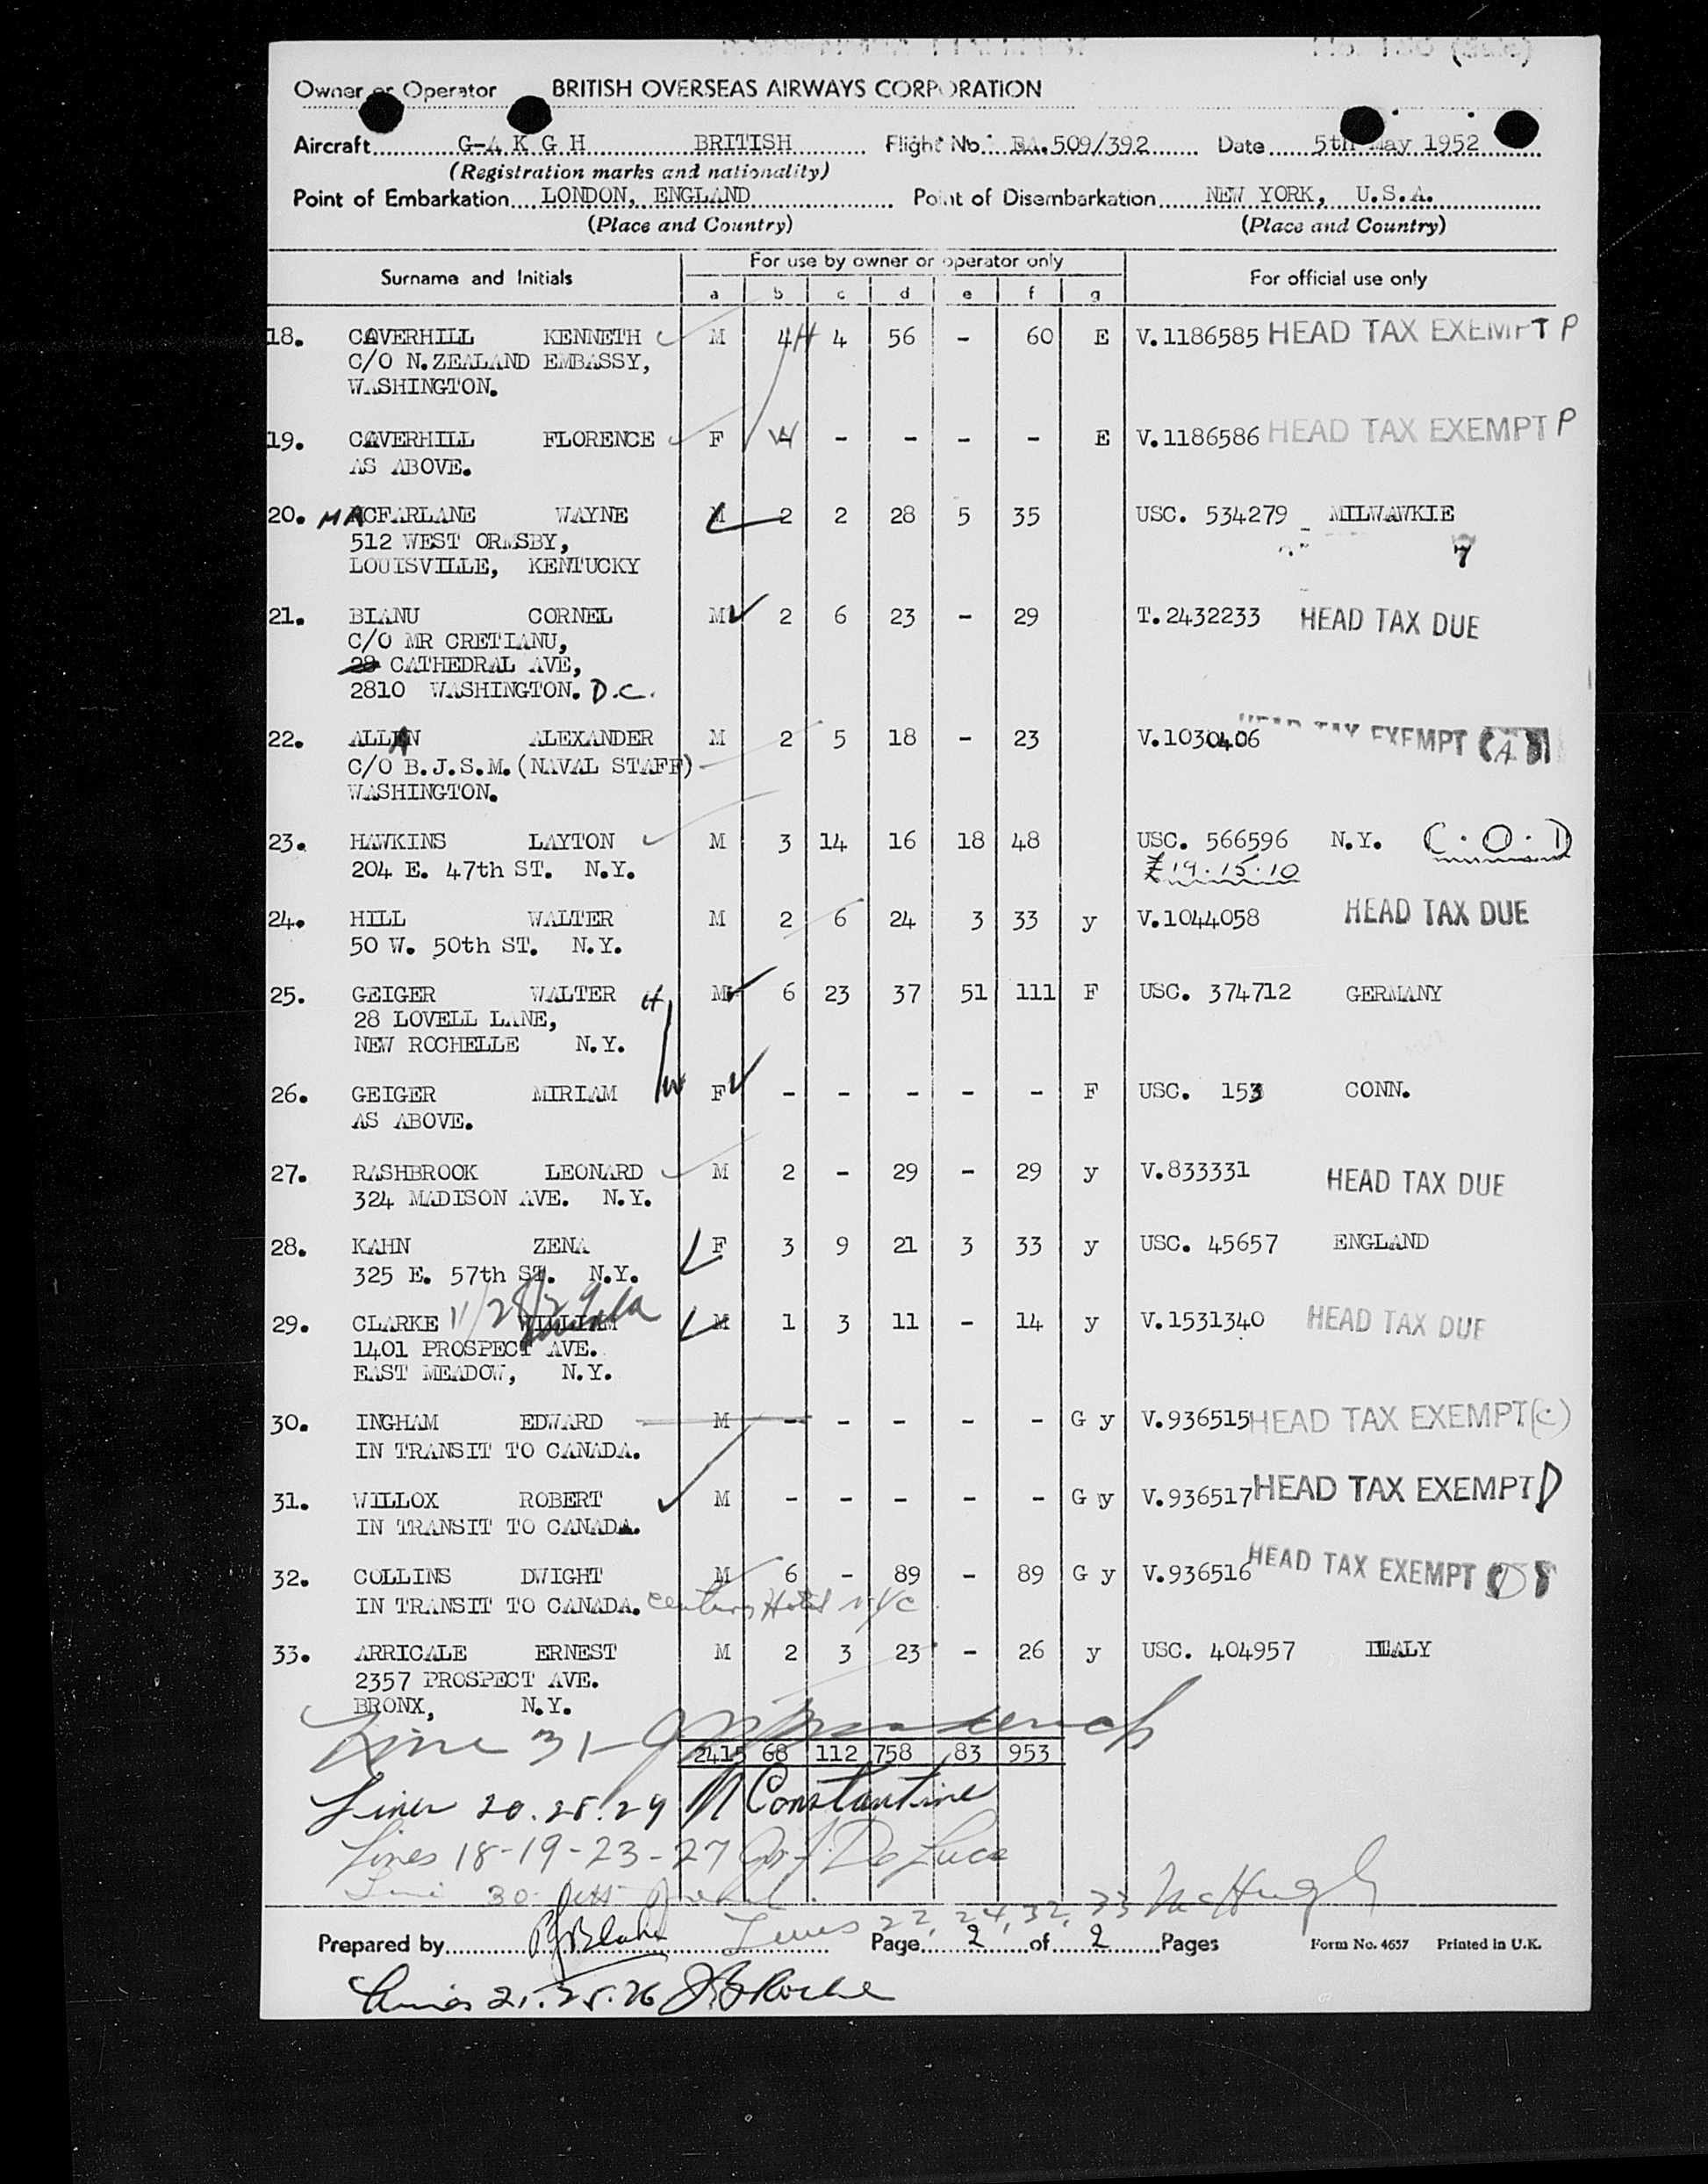 Owner or Operator BRITISH OVERSEAS AIRWAYS CORPORATION
Aircraft G-A K G H BRITISH Flight No. BA.509/392 Date 5th May 1952
(Registration marks and nationality)
Point of Embarkation LONDON, ENGLAND Point of Disembarkation NEW YORK, U.S.A.
(Place and Country) (Place and Country)
Surname and Initials For use by owner or operator only For official use only
a b c d e f g
18. CAVERHILL KENNETH M 4 H 4 56 - 60 E V.1186585 HEAD TAX EXEMPT P
C/O N.ZEALAND EMBASSY,
WASHINGTON.
19. CAVERHILL FLORENCE F W - - - - E V.1186586 HEAD TAX EXEMPT P
AS ABOVE.
20. MACFARLANE WAYNE M 2 2 28 5 35 USC. 534279 MILWAWKIE
512 WEST ORMSBY, 7
LOUISVILLE, KENTUCKY
21. BIANU CORNEL M 2 6 23 - 29 T.2432233 HEAD TAX DUE
C/O MR CRETIANU,
28 CATHEDRAL AVE,
2810 WASHINGTON. D.C.
22. ALLAN ALEXANDER M 2 5 18 - 23 V.1030406 HEAD TAX EXEMPT (A)
C/O B.J.S.M.(NAVAL STAFF)
WASHINGTON.
23. HAWKINS LAYTON M 3 14 16 18 48 USC. 566596 N.Y. C.O.D
204 E. 47th ST. N.Y. £19.15.10
24. HILL WALTER M 2 6 24 3 33 y V.1044058 HEAD TAX DUE
50 W. 50th ST. N.Y.
25. GEIGER WALTER H M 6 23 37 51 111 F USC. 374712 GERMANY
28 LOVELL LANE,
NEW ROCHELLE N.Y.
26. GEIGER MIRIAM W F - - - - - F USC. 153 CONN.
AS ABOVE.
27. RASHBROOK LEONARD M 2 - 29 - 29 y V.833331 HEAD TAX DUE
324 MADISON AVE. N.Y.
28. KAHN ZENA F 3 9 21 3 33 y USC. 45657 ENGLAND
325 E. 57th ST. N.Y.
29. CLARKE 11/28/29 WILLIAM M 1 3 11 - 14 y V.1531340 HEAD TAX DUE
1401 PROSPECT AVE.
EAST MEADOW, N.Y.
30. INGHAM EDWARD M - - - - - G y V.936515 HEAD TAX EXEMPT (C)
IN TRANSIT TO CANADA.
31. WILLOX ROBERT M - - - - - G y V.936517 HEAD TAX EXEMPT D
IN TRANSIT TO CANADA.
32. COLLINS DWIGHT M 6 - 89 - 89 G y V.936516 HEAD TAX EXEMPT D
IN TRANSIT TO CANADA. Hotel NYC
33. ARRICALE ERNEST M 2 3 23 - 26 y USC. 404957 ITALY
2357 PROSPECT AVE.
BRONX, N.Y.
Line 31-
2415 68 112 758 83 953
Lines 20.28.29 N Constantine
Lines 18-19-23-27 De Luca
Line 30
Lines 22, 24, 32, 33 McHugh
Prepared by Page 2 of 2 Pages Form No. 4657 Printed in U.K.
Lines 21.25.26 Roche